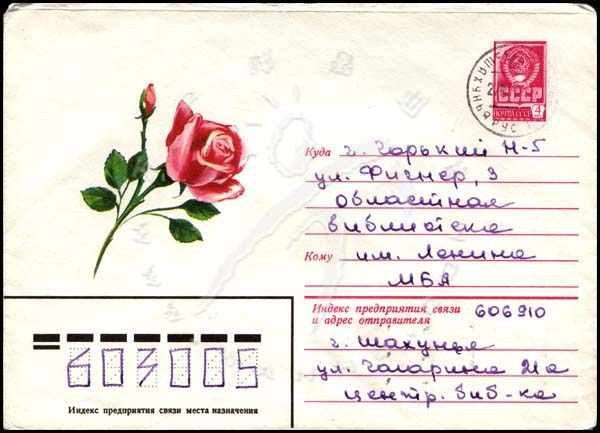 СССР
ПОЧТА СССР 4
Куда г. Горький Н-5
ул. Фигнер, 3
областная
библиотека
Кому им. Ленина
МБА
Индекс предприятия связи 606910
и адрес отправителя
г. Шахунья
ул. Гагарина
центр. биб-ка
603005
Индекс предприятия связи места назначения